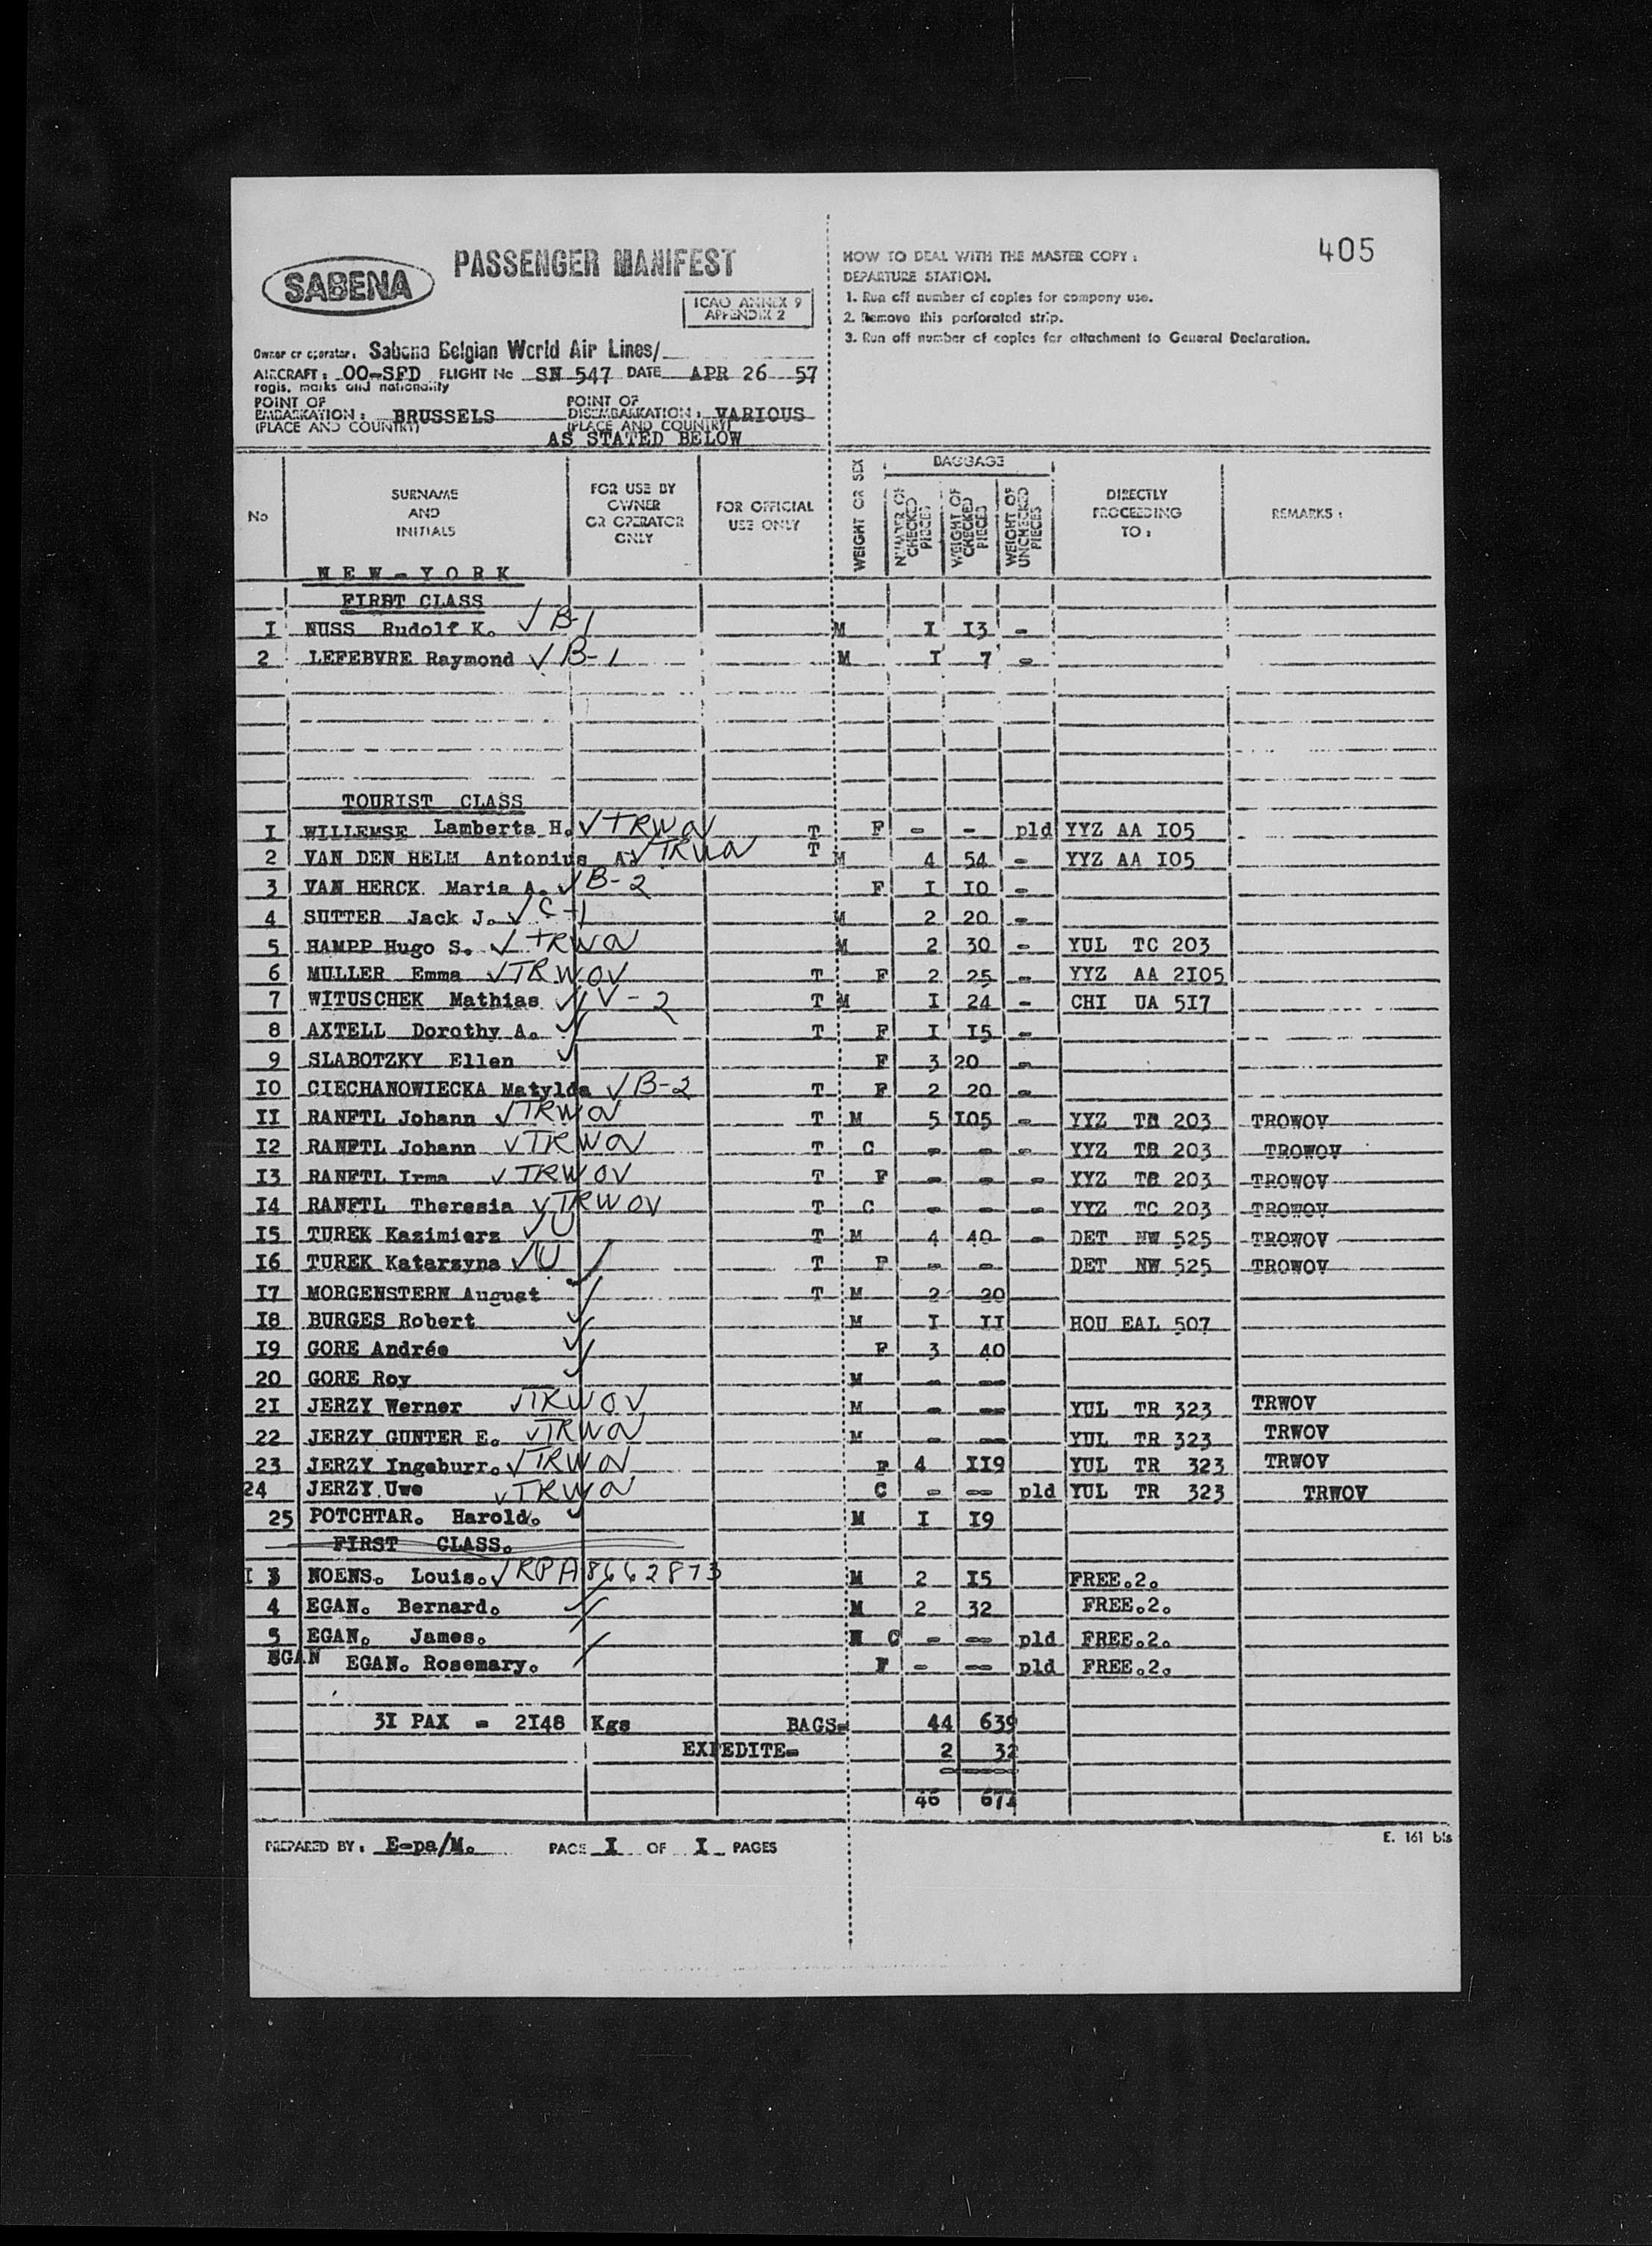 405
SABENA
PASSENGER MANIFEST
ICAO ANNEX 9
APPENDIX 2
HOW TO DEAL WITH THE MASTER COPY :
DEPARTURE STATION.
1. Run off number of copies for company use.
2. Remove this perforated strip.
3. Run off number of copies for attachment to General Declaration.
Owner or operator: Sabena Belgian World Air Lines/
AIRCRAFT: OO-SFD FLIGHT No SN 547 DATE APR 26 57
regis. marks and nationality
POINT OF EMBARKATION: BRUSSELS POINT OF DISEMBARKATION: VARIOUS
(PLACE AND COUNTRY) (PLACE AND COUNTRY)
AS STATED BELOW
No SURNAME AND INITIALS FOR USE BY OWNER OR OPERATOR ONLY FOR OFFICIAL USE ONLY WEIGHT OR SEX BAGGAGE NUMBER OF CHECKED PIECES WEIGHT OF CHECKED PIECES WEIGHT OF UNCHECKED PIECES DIRECTLY PROCEEDING TO : REMARKS :
NEW-YORK
FIRST CLASS
I NUSS Rudolf K. √ B-1 M I I3 -
2 LEFEBVRE Raymond √ B-1 M I 7 -
TOURIST CLASS
I WILLEMSE Lamberta H. √ TRWOV T F - - pld YYZ AA I05
2 VAN DEN HELM Antonius A. √ TRWOV T M 4 54 - YYZ AA I05
3 VAN HERCK Maria A. √ B-2 F I I0 -
4 SUTTER Jack J. √ C-1 M 2 20 -
5 HAMPP Hugo S. √ TRWOV M 2 30 - YUL TC 203
6 MULLER Emma √ TRWOV T F 2 25 - YYZ AA 2I05
7 WITUSCHEK Mathias √ V-2 T M I 24 - CHI UA 5I7
8 AXTELL Dorothy A. √ T F I I5 -
9 SLABOTZKY Ellen √ F 3 20 -
I0 CIECHANOWIECKA Matylda √ B-2 T F 2 20 -
II RANFTL Johann √ TRWOV T M 5 I05 - YYZ TR 203 TROWOV
I2 RANFTL Johann √ TRWOV T C - - - YYZ TR 203 TROWOV
I3 RANFTL Irma √ TRWOV T F - - - YYZ TR 203 TROWOV
I4 RANFTL Theresia √ TRWOV T C - - - YYZ TC 203 TROWOV
I5 TUREK Kazimierz √ U T M 4 40 - DET NW 525 TROWOV
I6 TUREK Katarzyna √ U T F - - DET NW 525 TROWOV
I7 MORGENSTERN August √ T M 2 20
I8 BURGES Robert √ M I II HOU EAL 507
I9 GORE Andrée √ F 3 40
20 GORE Roy √ M - --
2I JERZY Werner √ TRWOV M - -- YUL TR 323 TRWOV
22 JERZY GUNTER E. √ TRWOV M - -- YUL TR 323 TRWOV
23 JERZY Ingeburr. √ TRWOV F 4 II9 YUL TR 323 TRWOV
24 JERZY.Uwe √ TRWOV C - -- pld YUL TR 323 TRWOV
25 POTCHTAR. Harold. √ M I I9
FIRST CLASS.
I 3 NOENS. Louis. √ RPA 8662873 M 2 I5 FREE.2.
4 EGAN. Bernard. √ M 2 32 FREE.2.
5 EGAN. James. √ C - -- pld FREE.2.
EGAN EGAN. Rosemary. √ F - -- pld FREE.2.
3I PAX = 2I48 Kgs BAGS= 44 639
EXPEDITE= 2 32
46 671
PREPARED BY: E-pa/M. PAGE I OF I PAGES
E. 161 bis